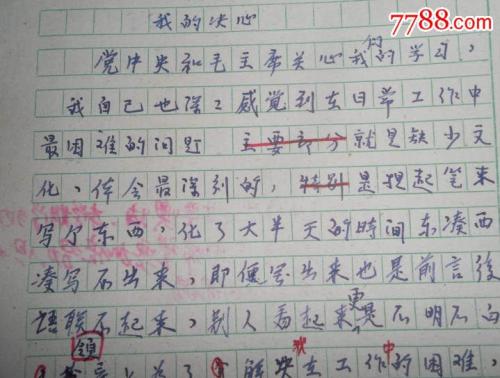 7788.com
我的决心
党中央和毛主席关心我们的学习，
我自己也深深感觉到在日常工作中
最困难的问题 主要部分就是缺少文
化，体会最深刻的，特别是提起笔来
写个东西，化了大半天的時间东凑西
凑写不出来，即便写出来也是前言後
语联不起来，别人看起来更是不明不白
領
解决在工作中的困难，